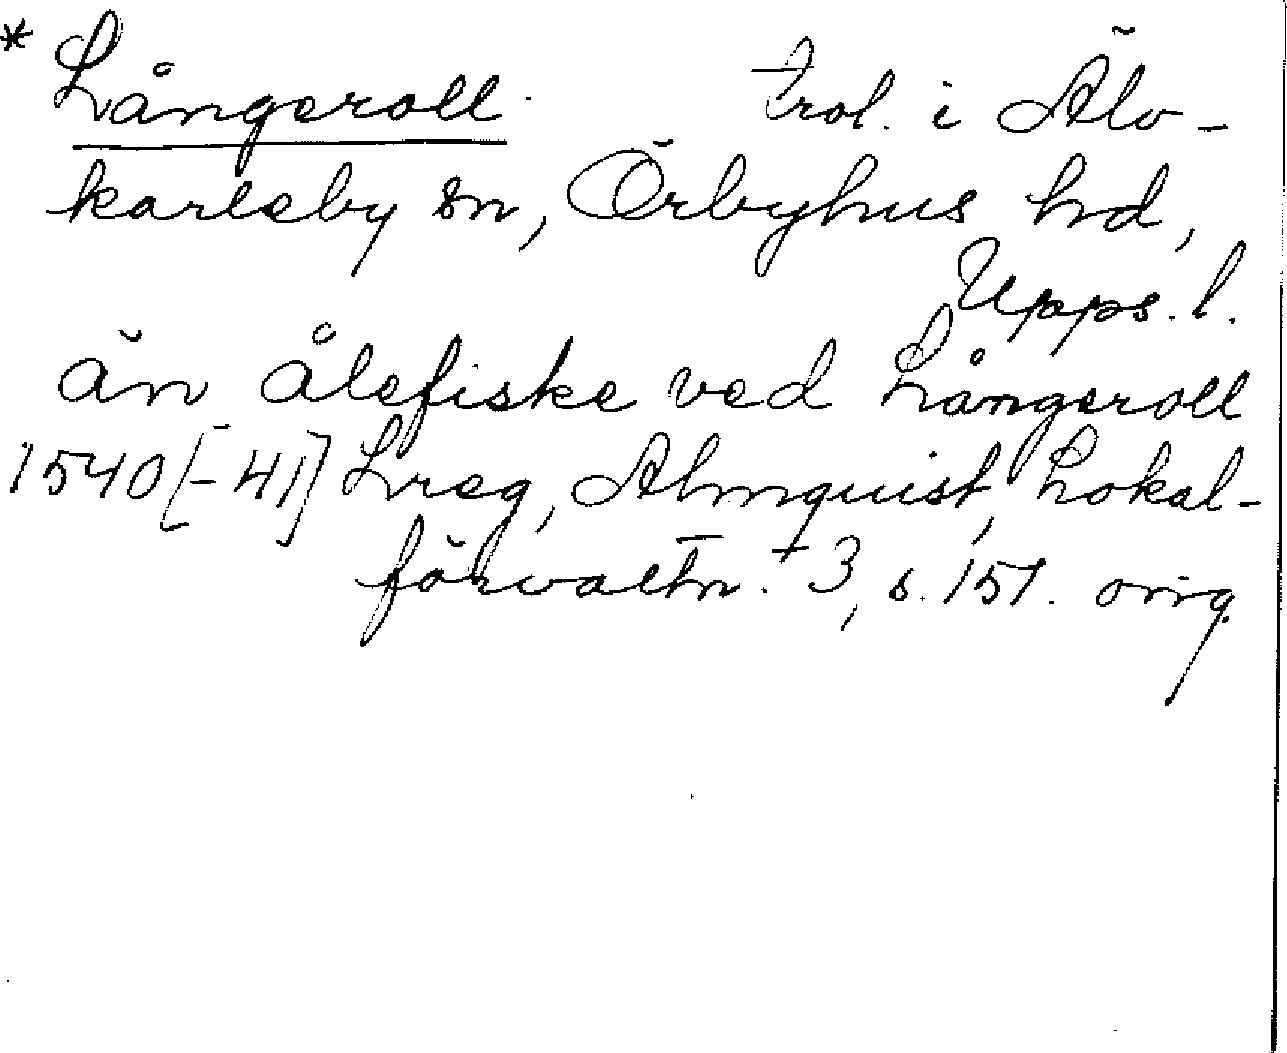 * Långeroll Trol. i Älv-
karleby sn, Örbyhus hd,
Upps. l.
än ålefiske ved Långeroll
1540[-41] Lreg, Almquist, Lokal-
förvaltn. 3, s. 151. orig.